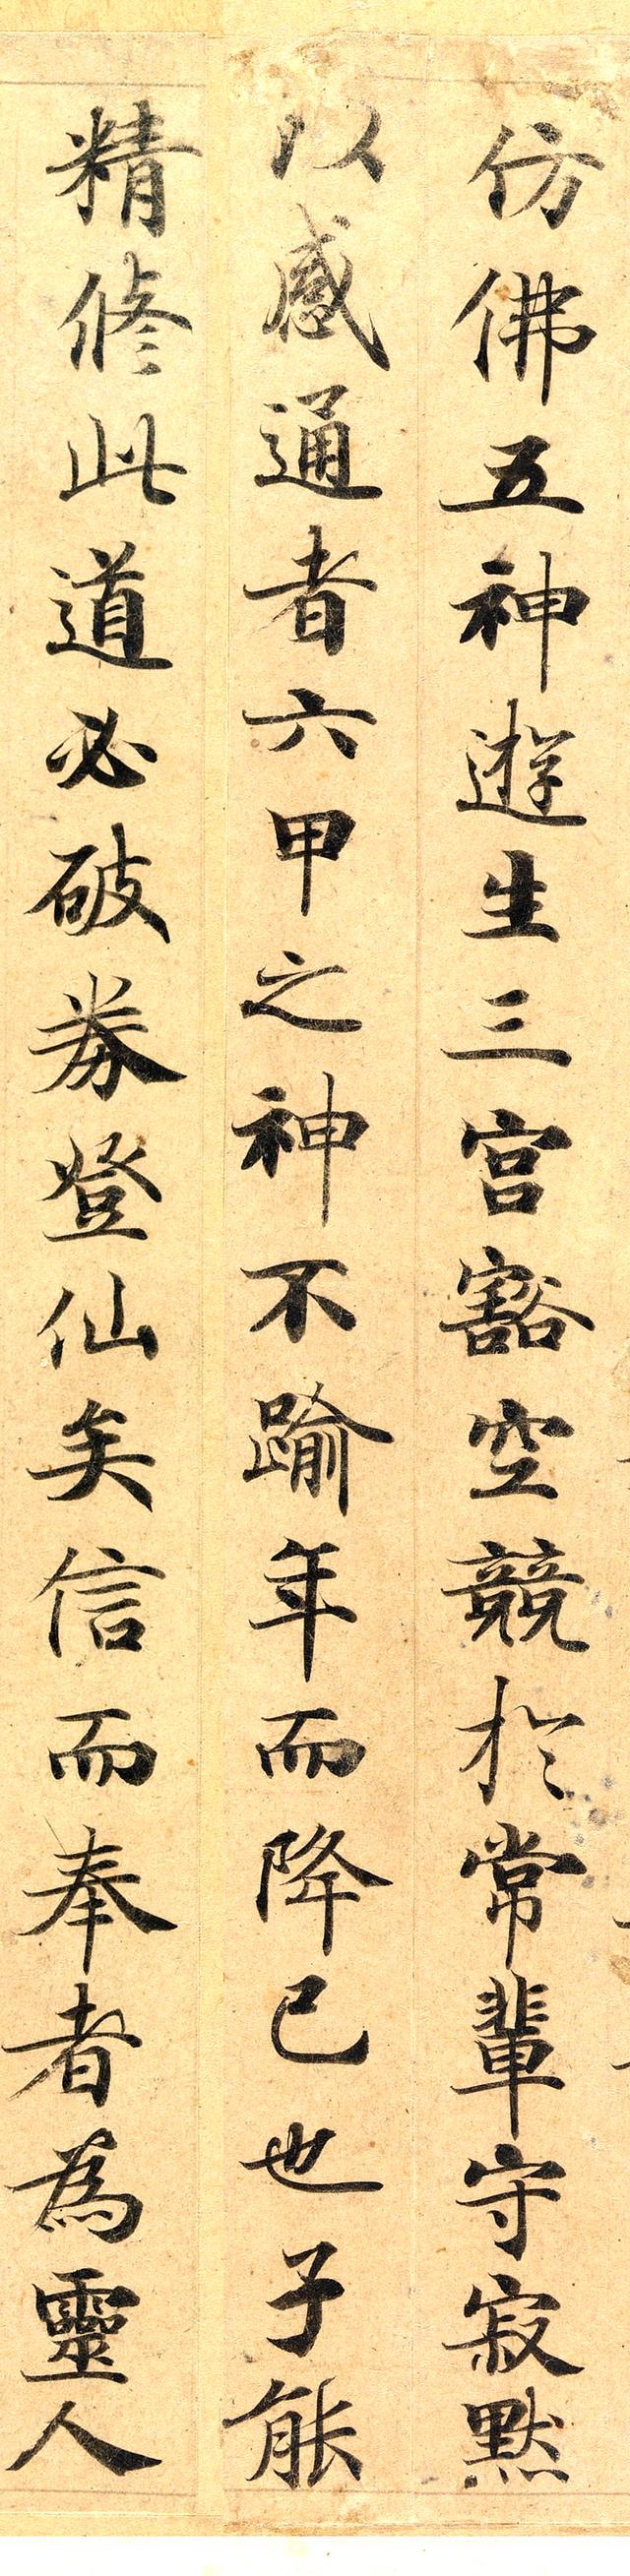 仿佛五神遊生三宮豁空競於常輩守寂默
以感通者六甲之神不踰年而降已也子能
精脩此道必破券登仙矣信而奉者為靈人